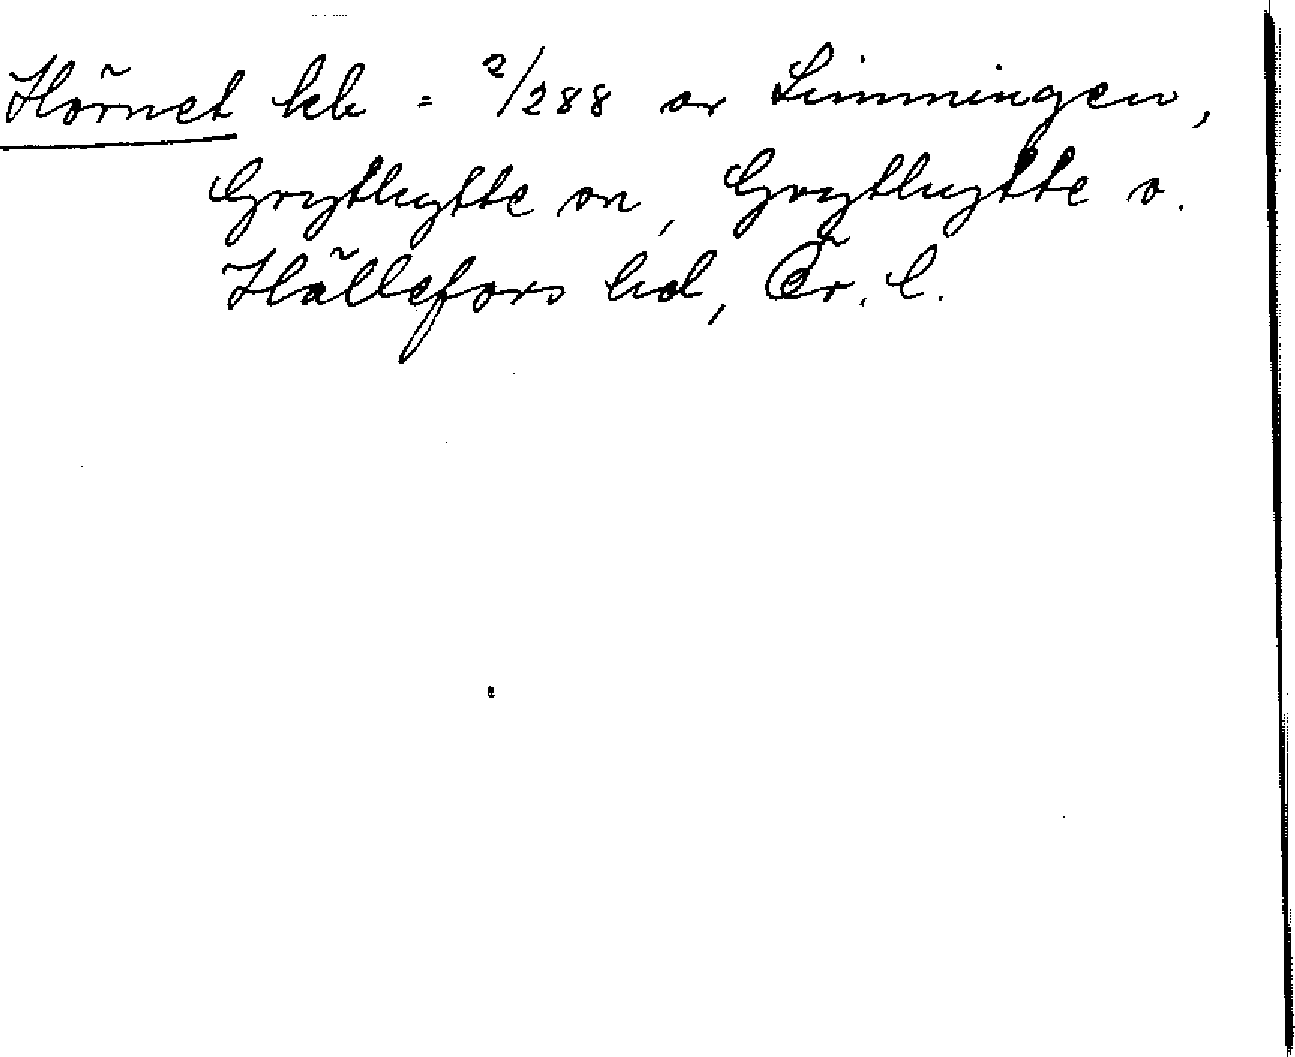 Hörnet hk = 2/288 av Limmingen,
Grythytte sn, Grythytte o.
Hällefors hd, Ör. l.